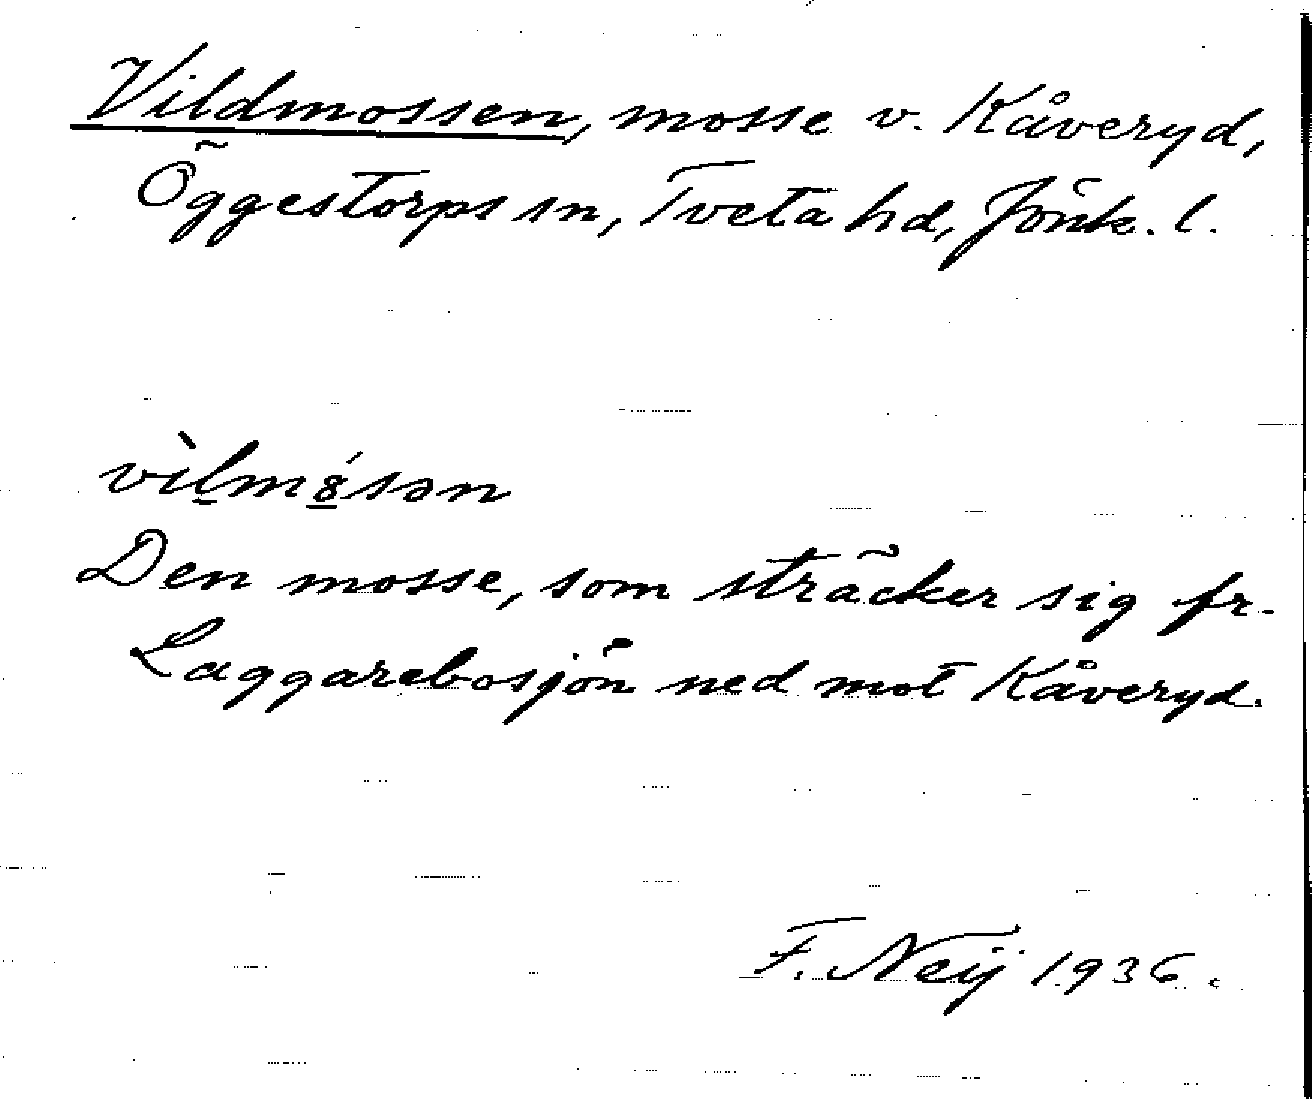 Vildmossen, mosse v. Kåveryd,
Öggestorps sn, Tveta hd, Jönk. l.
vìlmꞵ́sən
Den mosse, som sträcker sig fr.
Laggarebosjön ned mot Kåveryd.
F. Neij 1936.